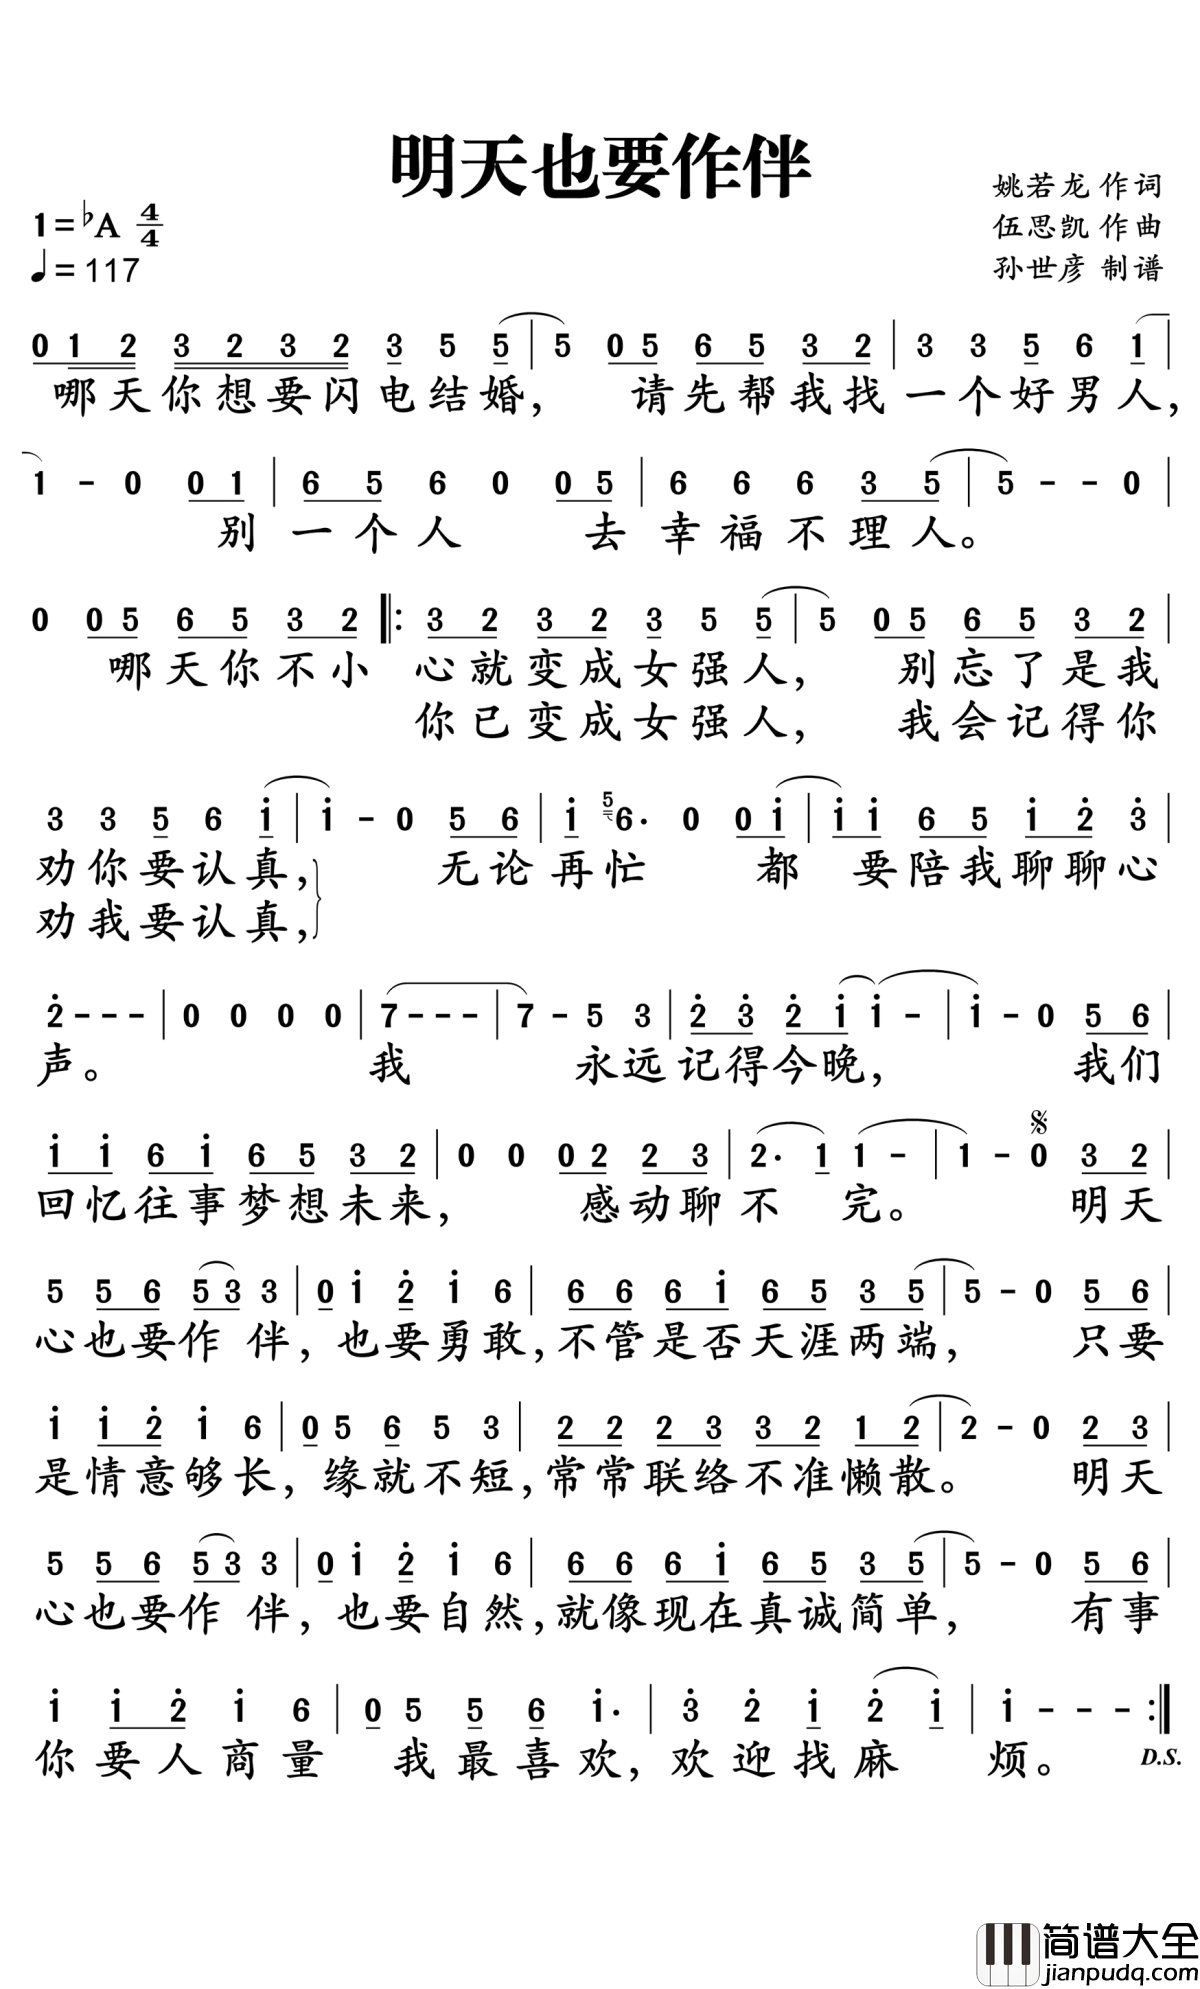 明天也要作伴
姚若龙 作词
1=♭A 4/4
伍思凯 作曲
♩=117
孙世彦 制谱
0 1 2 3 2 3 2 3 5 5 | 5 0 5 6 5 3 2 | 3 3 5 6 1 |
哪天你想要闪电结婚, 请先帮我找一个好男人,
1 - 0 0 1 | 6 5 6 0 0 5 | 6 6 6 3 5 | 5 - - 0 |
别一个人 去幸福不理人。
0 0 5 6 5 3 2 ‖: 3 2 3 2 3 5 5 | 5 0 5 6 5 3 2 |
哪天你不小 心就变成女强人, 别忘了是我
你已变成女强人, 我会记得你
3 3 5 6 i | i - 0 5 6 | i 5 6. 0 0 i | i i 6 5 i 2̇ 3̇ |
劝你要认真, 无论再忙 都 要陪我聊聊心
劝我要认真,
2̇ - - - | 0 0 0 0 | 7 - - - | 7 - 5 3 | 2̇ 3̇ 2̇ i i - | i - 0 5 6 |
声。 我 永远记得今晚, 我们
i i 6 i 6 5 3 2 | 0 0 0 2 2 3 | 2. 1 1 - | 1 - 𝄋 0 3 2 |
回忆往事梦想未来, 感动聊不 完。 明天
5 5 6 5 3 3 | 0 i 2̇ i 6 | 6 6 6 i 6 5 3 5 | 5 - 0 5 6 |
心也要作 伴, 也要勇敢, 不管是否天涯两端, 只要
i i 2̇ i 6 | 0 5 6 5 3 | 2 2 2 3 3 2 1 2 | 2 - 0 2 3 |
是情意够长, 缘就不短, 常常联络不准懒散。 明天
5 5 6 5 3 3 | 0 i 2̇ i 6 | 6 6 6 i 6 5 3 5 | 5 - 0 5 6 |
心也要作 伴, 也要自然, 就像现在真诚简单, 有事
i i 2̇ i 6 | 0 5 5 6 i. | 3̇ 2̇ i 2̇ i | i - - - :‖
你要人商量 我最喜欢, 欢迎找麻 烦。 D.S.
简谱大全
jianpudq.com